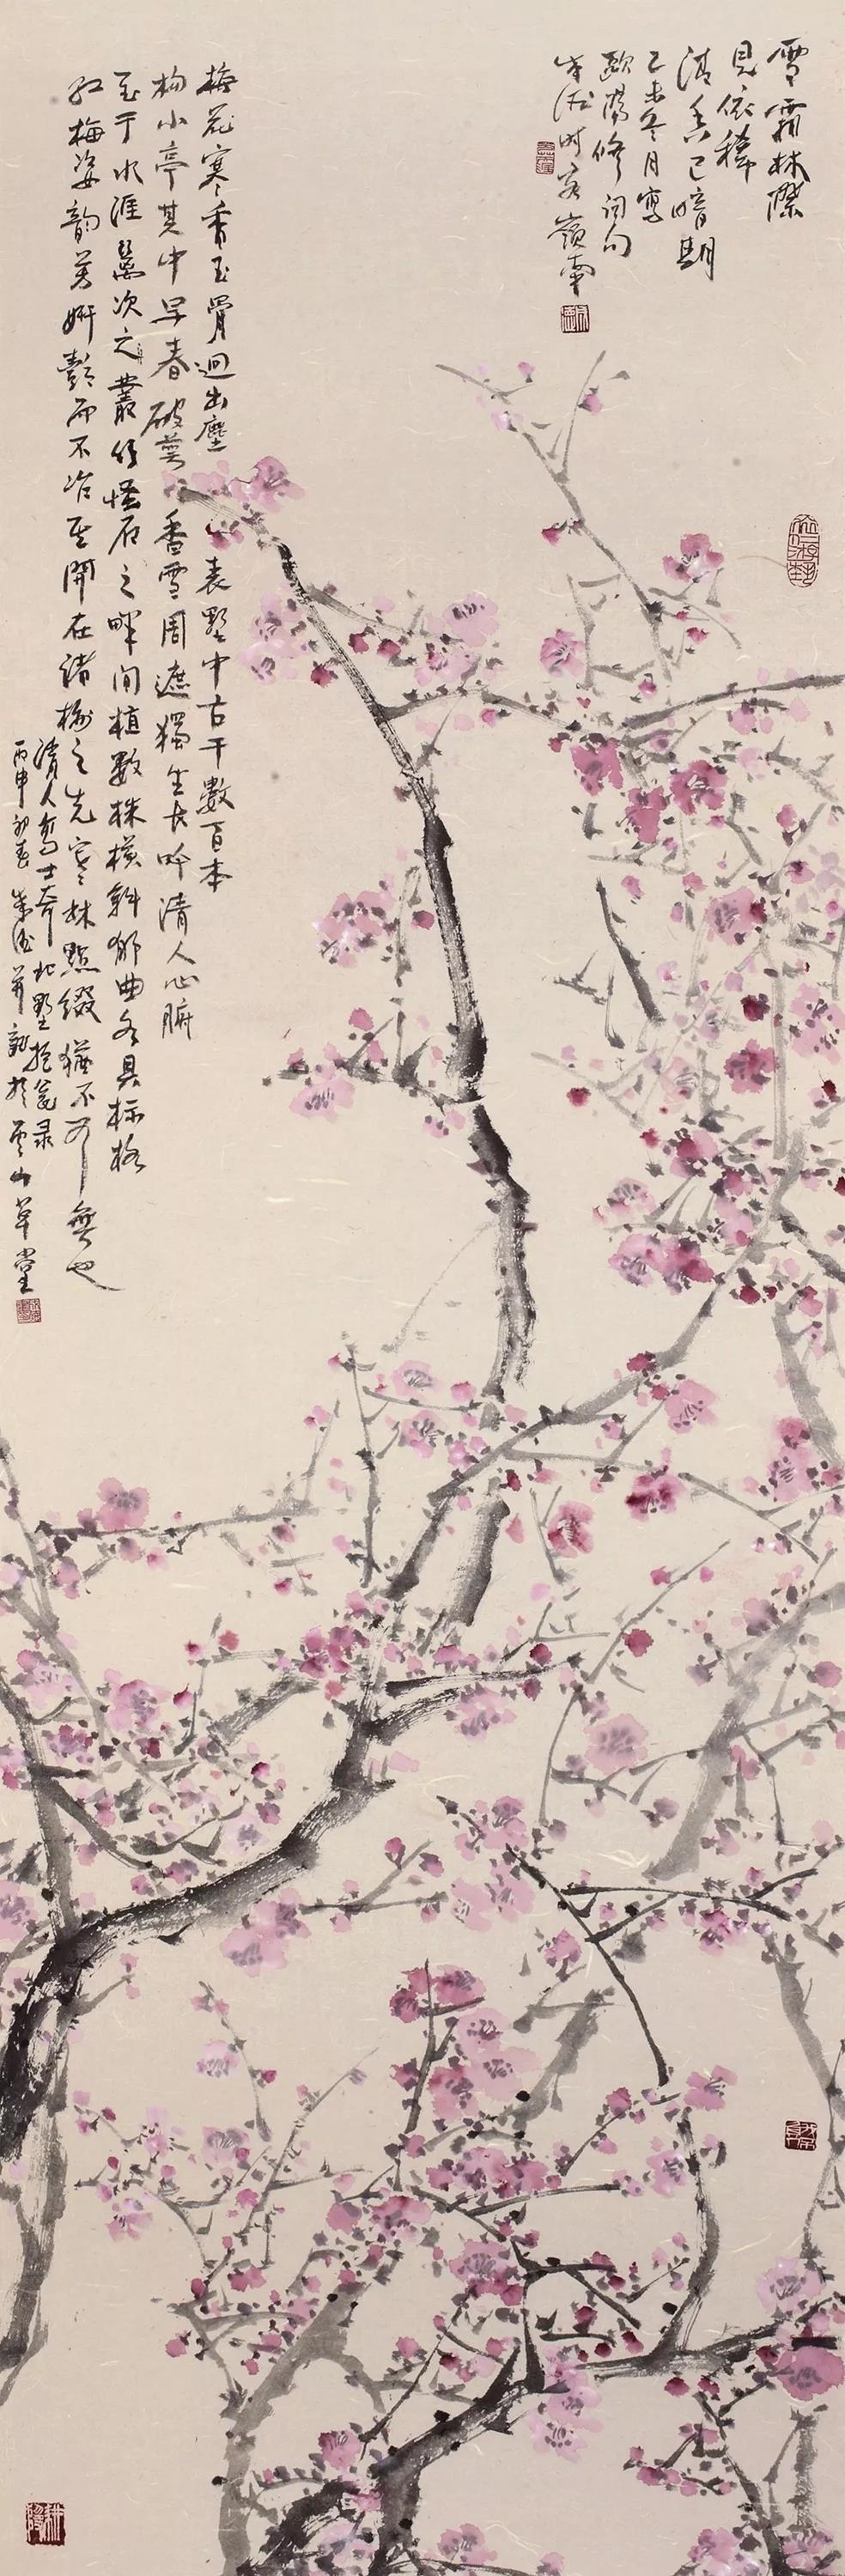 雪霜林際
見依稀
清香已暗期
乙未冬月寫
歐陽修詞句
朱德時客嶺南
梅花寒香玉骨迥出塵表墅中古干數百本
构小亭其中早春破萼香雪周遮獨坐長吟清人心腑
至于水涯籬次之叢竹怪石之畔间植數株橫斜郁曲各具标格
红梅姿韵芳妍艷而不冶至開在諸梅之先寒林點缀猶不可無也
清人高士奇北墅抱瓮录
丙申初春朱德并記於雲山草堂